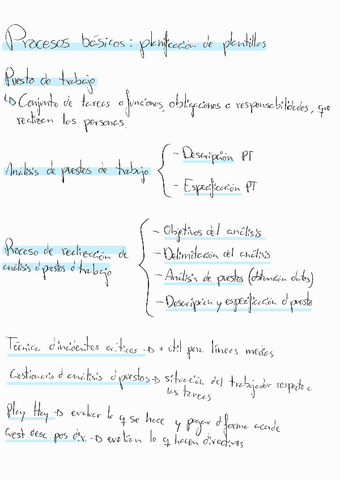 Procesos básicos: planificación de plantillas
Puesto de trabajo
↳ Conjunto de tareas o funciones, obligaciones o responsabilidades, que
realizan las personas.
Análisis de puestos de trabajo
- Descripción PT
- Especificación PT
Proceso de realización de
análisis d puestos d trabajo
- Objetivos del análisis
- Delimitación del análisis
- Análisis de puestos (obtención datos)
- Descripción y especificación d puesto
Técnica d incidentes críticos → + útil para líneas medias
Cuestionario d análisis d puestos → situación del trabajador respecto a
las tareas
Play Hay → evaluar lo q se hace y pagar d forma acorde
Cuest desc pos dir. → evalúan lo q hacen directivos